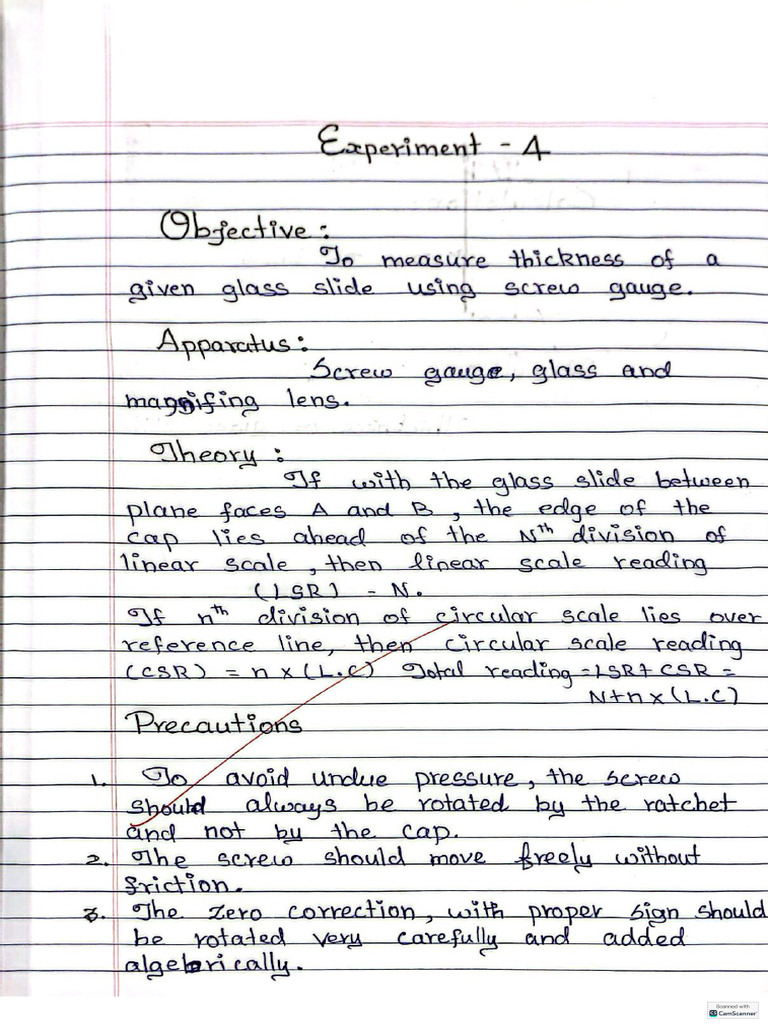 Experiment - 4
Objective:
To measure thickness of a
given glass slide using screw gauge.
Apparatus:
Screw gauge, glass and
magnifing lens.
Theory:
If with the glass slide between
plane faces A and B, the edge of the
cap lies ahead of the Nth division of
linear scale, then linear scale reading
(LSR) - N.
If nth division of circular scale lies over
reference line, then circular scale reading
(CSR) = n x (L.C) Total reading = LSR + CSR =
N+n x (L.C)
Precautions
1. To avoid undue pressure, the screw
should always be rotated by the ratchet
and not by the cap.
2. The screw should move freely without
friction.
3. The zero correction, with proper sign should
be rotated very carefully and added
algebrically.
Scanned with
CS CamScanner